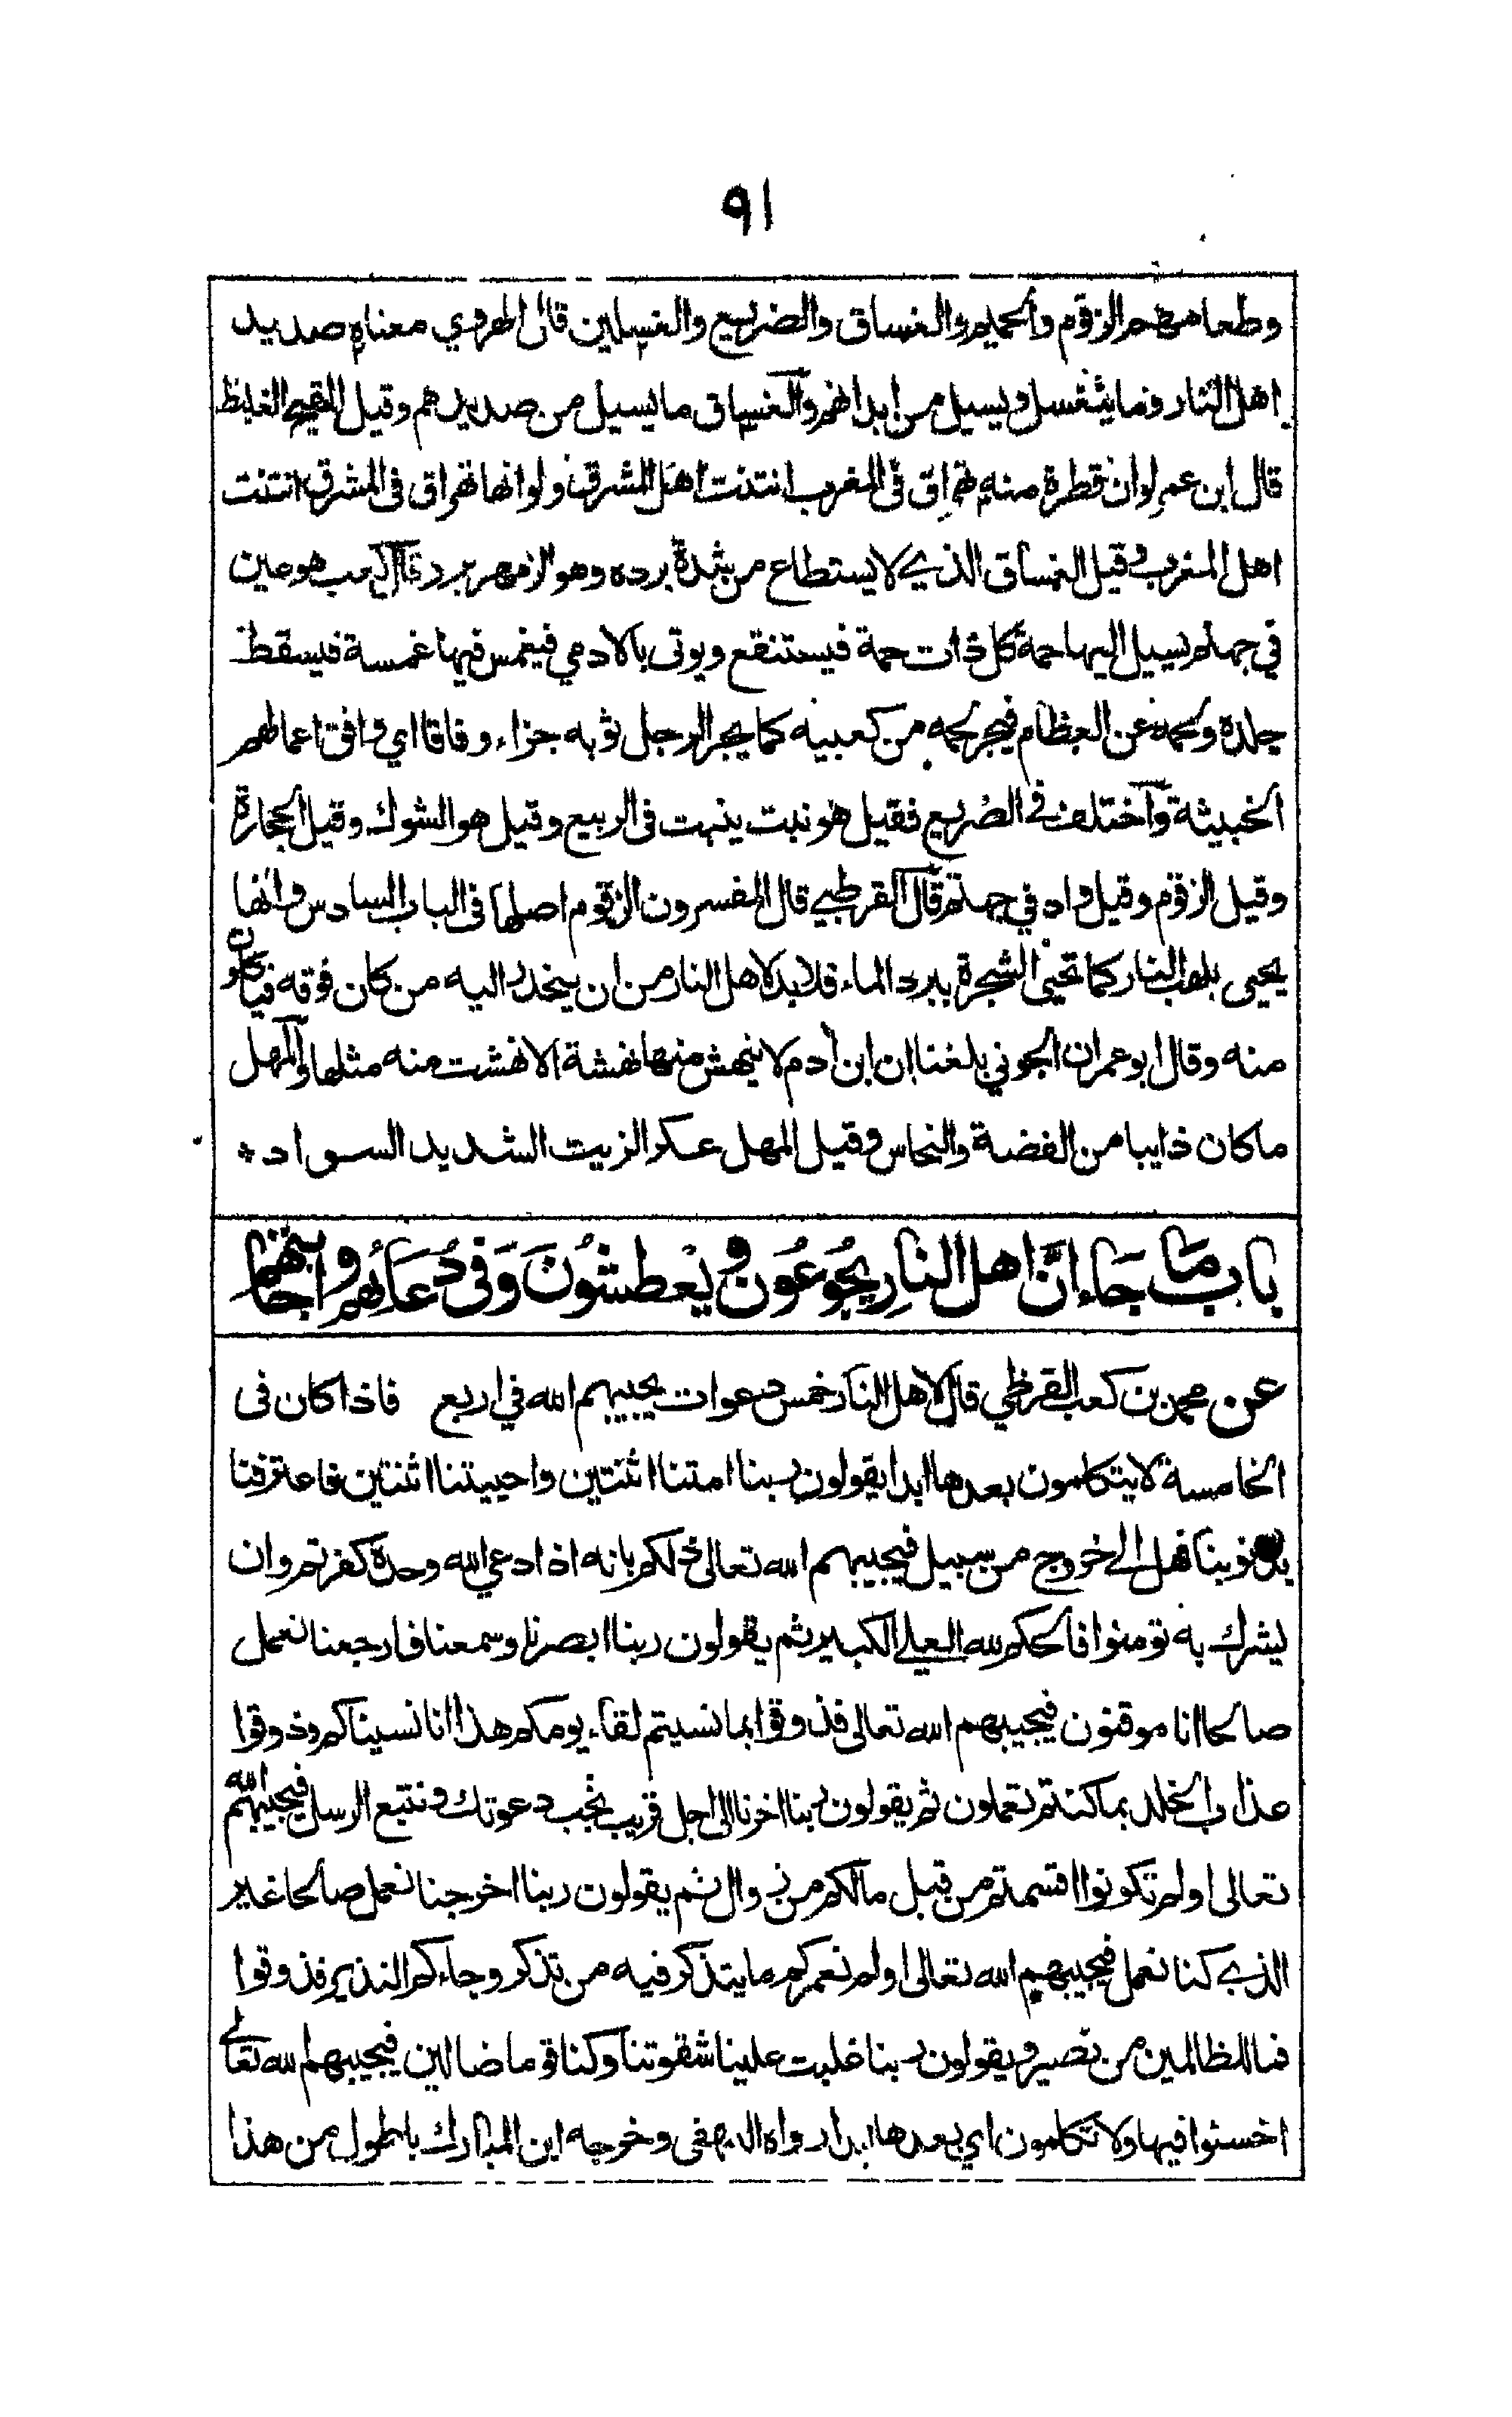 ٩١
وطعامهم الزقوم والحميم والغساق والضريع والغسلين قال الهروي معناه صديد
اهل النار وما ينغسل ويسيل من ابدانهم والغساق ما يسيل من صديدهم وقيل القيح الغليظ
قال ابن عمر لو ان قطرة منه تهراق في المغرب انتنت اهل المشرق ولو انها تهراق في المشرق انتنت
اهل المغرب وقيل الغساق الذي لا يستطاع من شدة برده وهو الزمهرير برد قال كعب هو عين
في جهنم يسيل اليها حمة كل ذات حمة فيستنقع ويوتى بالادمي فيغمس فيها غمسة فيسقط
جلده ولحمه عن العظام فيجر لحمه من كعبيه كما يجر الرجل ثوبه جزاء وفاقا اي وافق اعمالهم
الخبيثة واختلف في الضريع فقيل هو نبت ينبت فى الربيع وقيل هو الشوك وقيل الحجارة
وقيل الزقوم وقيل واد في جهنم قال القرطبي قال المفسرون الزقوم اصلها فى الباب السادس وانها
يحيى بلهب النار كما تحيى الشجرة ببرد الماء فلا بد لاهل النار من ان ينحدر اليه من كان فوقه فياكلون
منه وقال ابو عمران الجوني بلغنا ان ابن أدم لا ينهش منها نهشة الا نهشت منه مثلها والمهل
ما كان ذايبا من الفضة والنحاس وقيل المهل عكر الزيت الشديد السواد *
باب ما جاء ان اهل النار يجوعون ويعطشون وفى دعائهم واجابتهم
عن محمد بن كعب القرظي قال لاهل النار خمس دعوات يجيبهم الله في اربع فاذا كان فى
الخامسة لا يتكلمون بعدها ابدا يقولون ربنا امتنا اثنتين واحييتنا اثنتين فاعترفنا
بذنوبنا فهل الى خروج من سبيل فيجيبهم الله تعالى ذلكم بانه اذا دعي الله وحده كفرتم وان
يشرك به تومنوا فالحكم لله العلي الكبير ثم يقولون ربنا ابصرنا وسمعنا فارجعنا نعمل
صالحا انا موقنون فيجيبهم الله تعالى فذوقوا بما نسيتم لقاء يومكم هذا انا نسيناكم وذوقوا
عذاب الخلد بما كنتم تعملون ثم يقولون ربنا اخرنا الى اجل قريب نجب دعوتك ونتبع الرسل فيجيبهم الله
تعالى اولم تكونوا اقسمتم من قبل مالكم من زوال ثم يقولون ربنا اخرجنا نعمل صالحا غير
الذي كنا نعمل فيجيبهم الله تعالى اولم نعمركم ما يتذكر فيه من تذكر وجاءكم النذير فذوقوا
فما للظالمين من نصير ويقولون ربنا غلبت علينا شقوتنا وكنا قوما ضالين فيجيبهم الله تعالى
اخسئوا فيها ولا تكلمون اي بعدها ابدا رواه البيهقى وخرجه ابن المبارك باطول من هذا